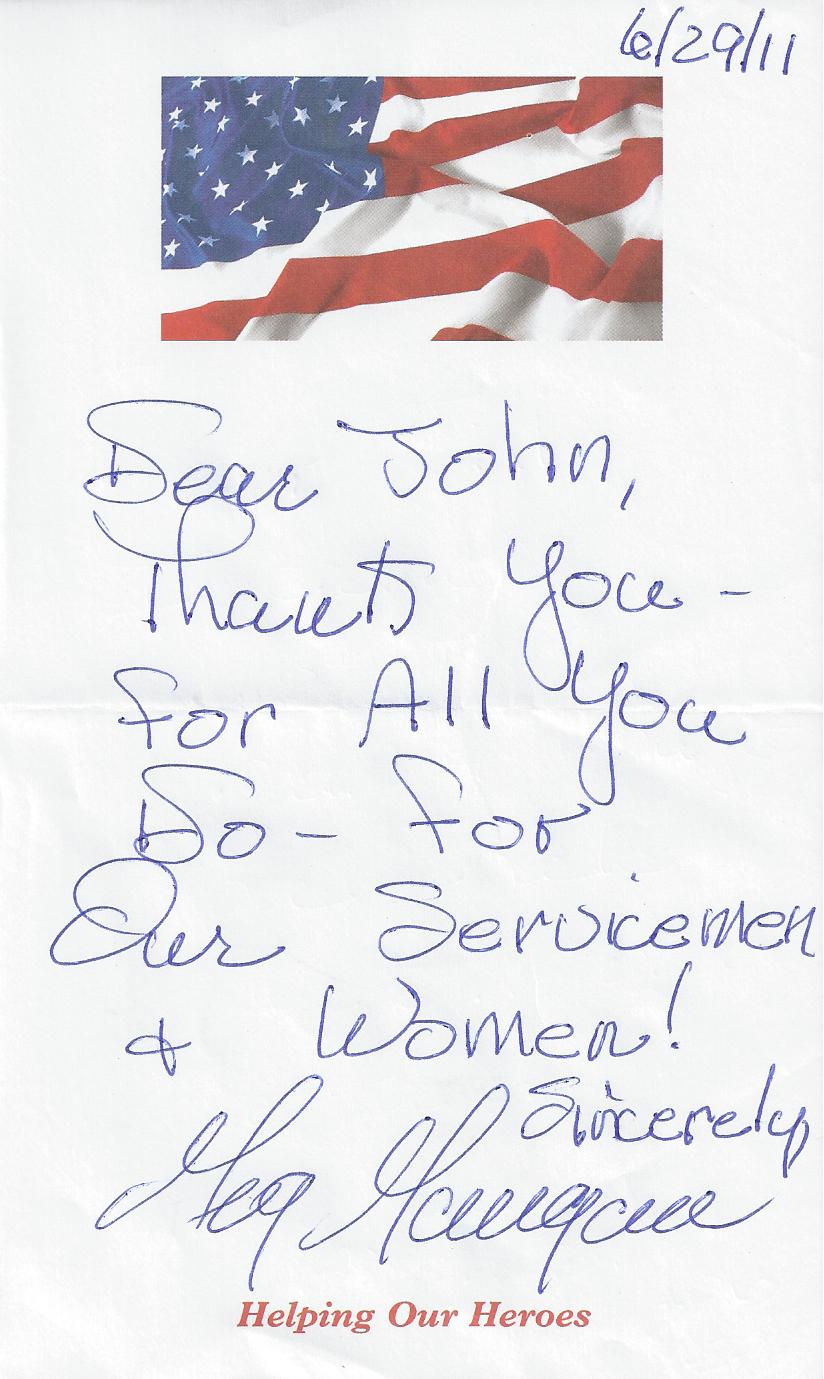 6/29/11
Dear John,
Thank You -
for All You
Do - for
Our Servicemen
& Women!
Sincerely
Meg
Helping Our Heroes